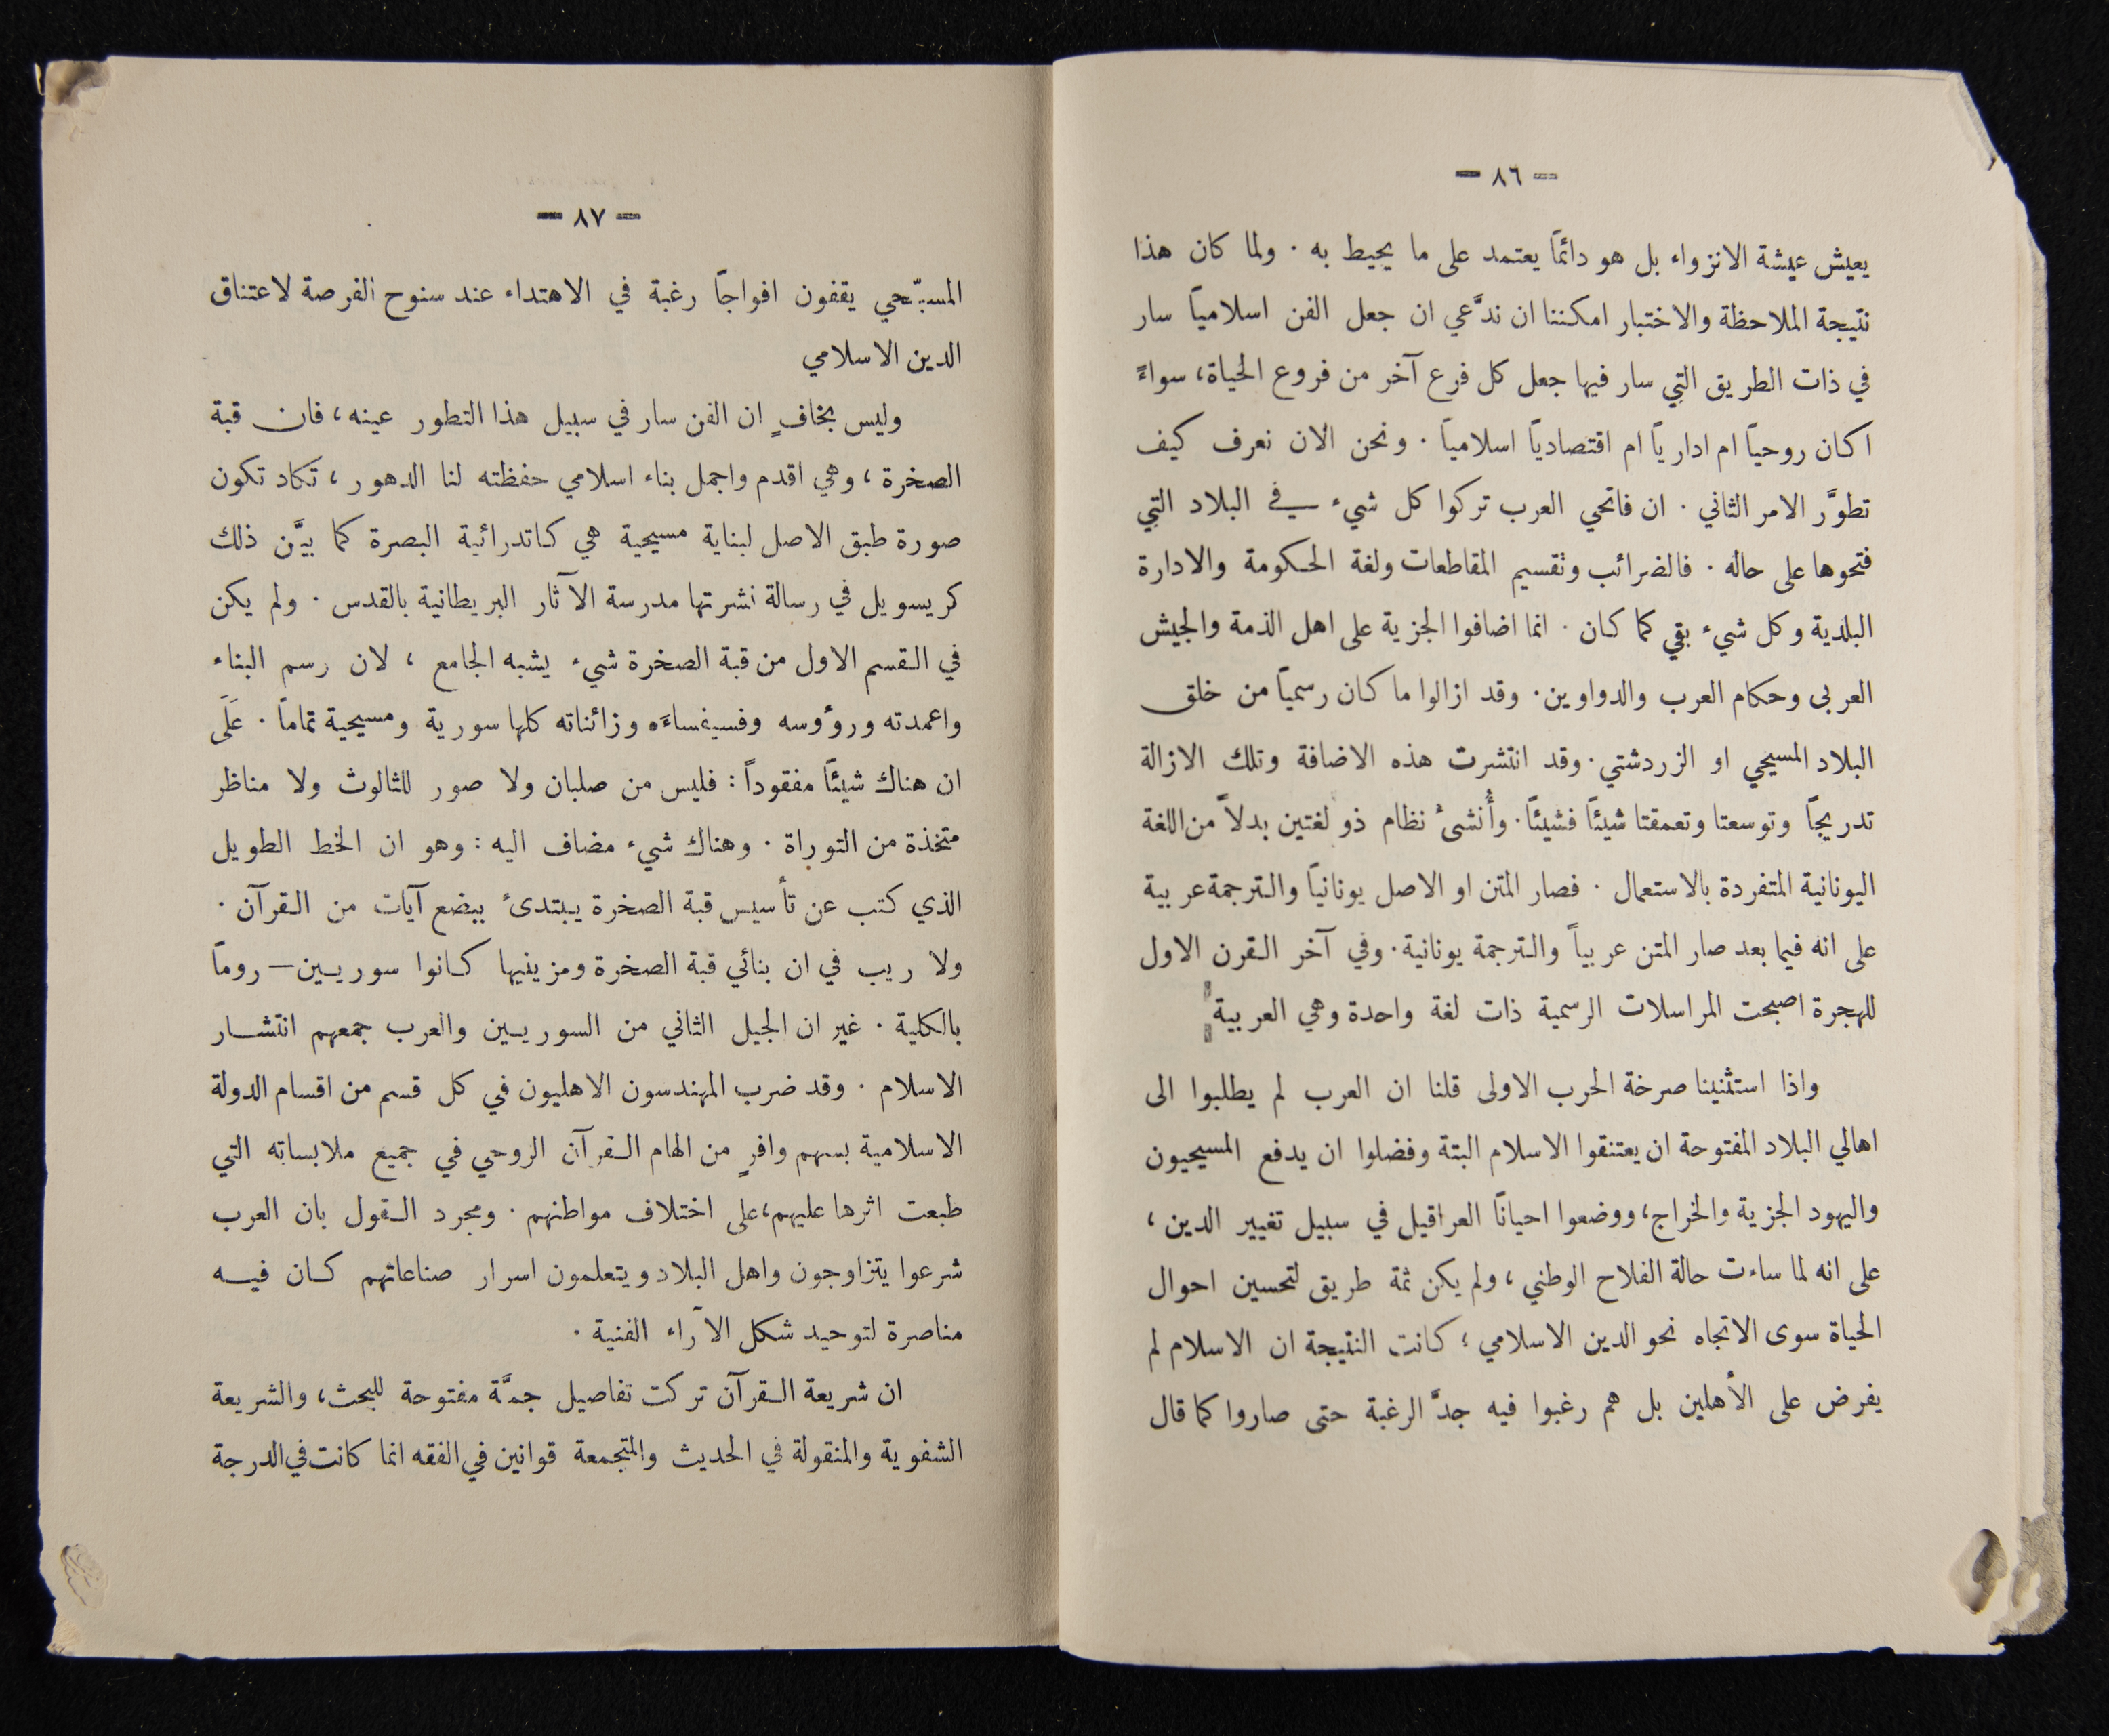 — ٨٦ —
يعيش عيشة الانزواء بل هو دائمًا يعتمد على ما يحيط به . ولما كان هذا
نتيجة الملاحظة والاختبار امكننا ان ندَّعي ان جعل الفن اسلاميًا سار
في ذات الطريق التي سار فيها جعل كل فرع آخر من فروع الحياة، سواءً
اكان روحيًا ام اداريًا ام اقتصاديًا اسلاميًا . ونحن الان نعرف كيف
تطوَّر الامر الثاني . ان فاتحي العرب تركوا كل شيء في البلاد التي
فتحوها على حاله . فالضرائب وتقسيم المقاطعات ولغة الحكومة والادارة
البلدية وكل شيء بقي كما كان . انما اضافوا الجزية على اهل الذمة والجيش
العربى وحكام العرب والدواوين. وقد ازالوا ما كان رسميًا من خلق
البلاد المسيحي او الزردشتي. وقد انتشرت هذه الاضافة وتلك الازالة
تدريجًا وتوسعتا وتعمقتا شيئًا فشيئًا. وأُنشئ نظام ذو لغتين بدلاً من اللغة
اليونانية المتفردة بالاستعمال . فصار المتن او الاصل يونانيًا والترجمة عربية
على انه فيما بعد صار المتن عربياً والترجمة يونانية. وفي آخر القرن الاول
للهجرة اصبحت المراسلات الرسمية ذات لغة واحدة وهي العربية
واذا استثنينا صرخة الحرب الاولى قلنا ان العرب لم يطلبوا الى
اهالي البلاد المفتوحة ان يعتنقوا الاسلام البتة وفضلوا ان يدفع المسيحيون
واليهود الجزية والخراج، ووضعوا احيانًا العراقيل في سبيل تغيير الدين ،
على انه لما ساءت حالة الفلاح الوطني ، ولم يكن ثمة طريق لتحسين احوال
الحياة سوى الاتجاه نحو الدين الاسلامي ؛ كانت النتيجة ان الاسلام لم
يفرض على الأهلين بل هم رغبوا فيه جدَّ الرغبة حتى صاروا كما قال
— ٨٧ —
المسبّحي يقفون افواجًا رغبة في الاهتداء عند سنوح الفرصة لاعتناق
الدين الاسلامي
وليس بخافٍ ان الفن سار في سبيل هذا التطور عينه ، فان قبة
الصخرة ، وهي اقدم واجمل بناء اسلامي حفظته لنا الدهور ، تكاد تكون
صورة طبق الاصل لبناية مسيحية هي كاتدرائية البصرة كما بيَّن ذلك
كريسويل في رسالة نشرتها مدرسة الآثار البريطانية بالقدس . ولم يكن
في القسم الاول من قبة الصخرة شيء يشبه الجامع ، لان رسم البناء
واعمدته ورؤوسه وفسيفساءَه وزائناته كلها سورية ومسيحية تمامًا . عَلَى
ان هناك شيئًا مفقوداً : فليس من صلبان ولا صور للثالوث ولا مناظر
متخذة من التوراة . وهناك شيء مضاف اليه : وهو ان الخط الطويل
الذي كتب عن تأسيس قبة الصخرة يبتدئ ببضع آيات من القرآن .
ولا ريب في ان بنائي قبة الصخرة ومزينيها كانوا سوريين — رومًا
بالكلية . غير ان الجيل الثاني من السوريين والعرب جمعهم انتشار
الاسلام . وقد ضرب المهندسون الاهليون في كل قسم من اقسام الدولة
الاسلامية بسهم وافرٍ من الهام القرآن الروحي في جميع ملابساته التي
طبعت اثرها عليهم، على اختلاف مواطنهم . ومجرد القول بان العرب
شرعوا يتزاوجون واهل البلاد ويتعلمون اسرار صناعاتهم كان فيه
مناصرة لتوحيد شكل الآراء الفنية .
ان شريعة القرآن تركت تفاصيل جمَّة مفتوحة للبحث ، والشريعة
الشفوية والمنقولة في الحديث والمتجمعة قوانين في الفقه انما كانت في الدرجة